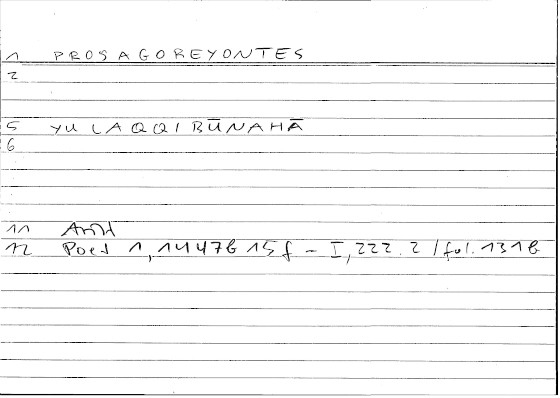 1 PROSAGOREYONTES
2
5 YULAQQIBŪNAHĀ
6
11 Arist
12 Poet 1, 1447b 15f - I, 222.2 / fol. 131b